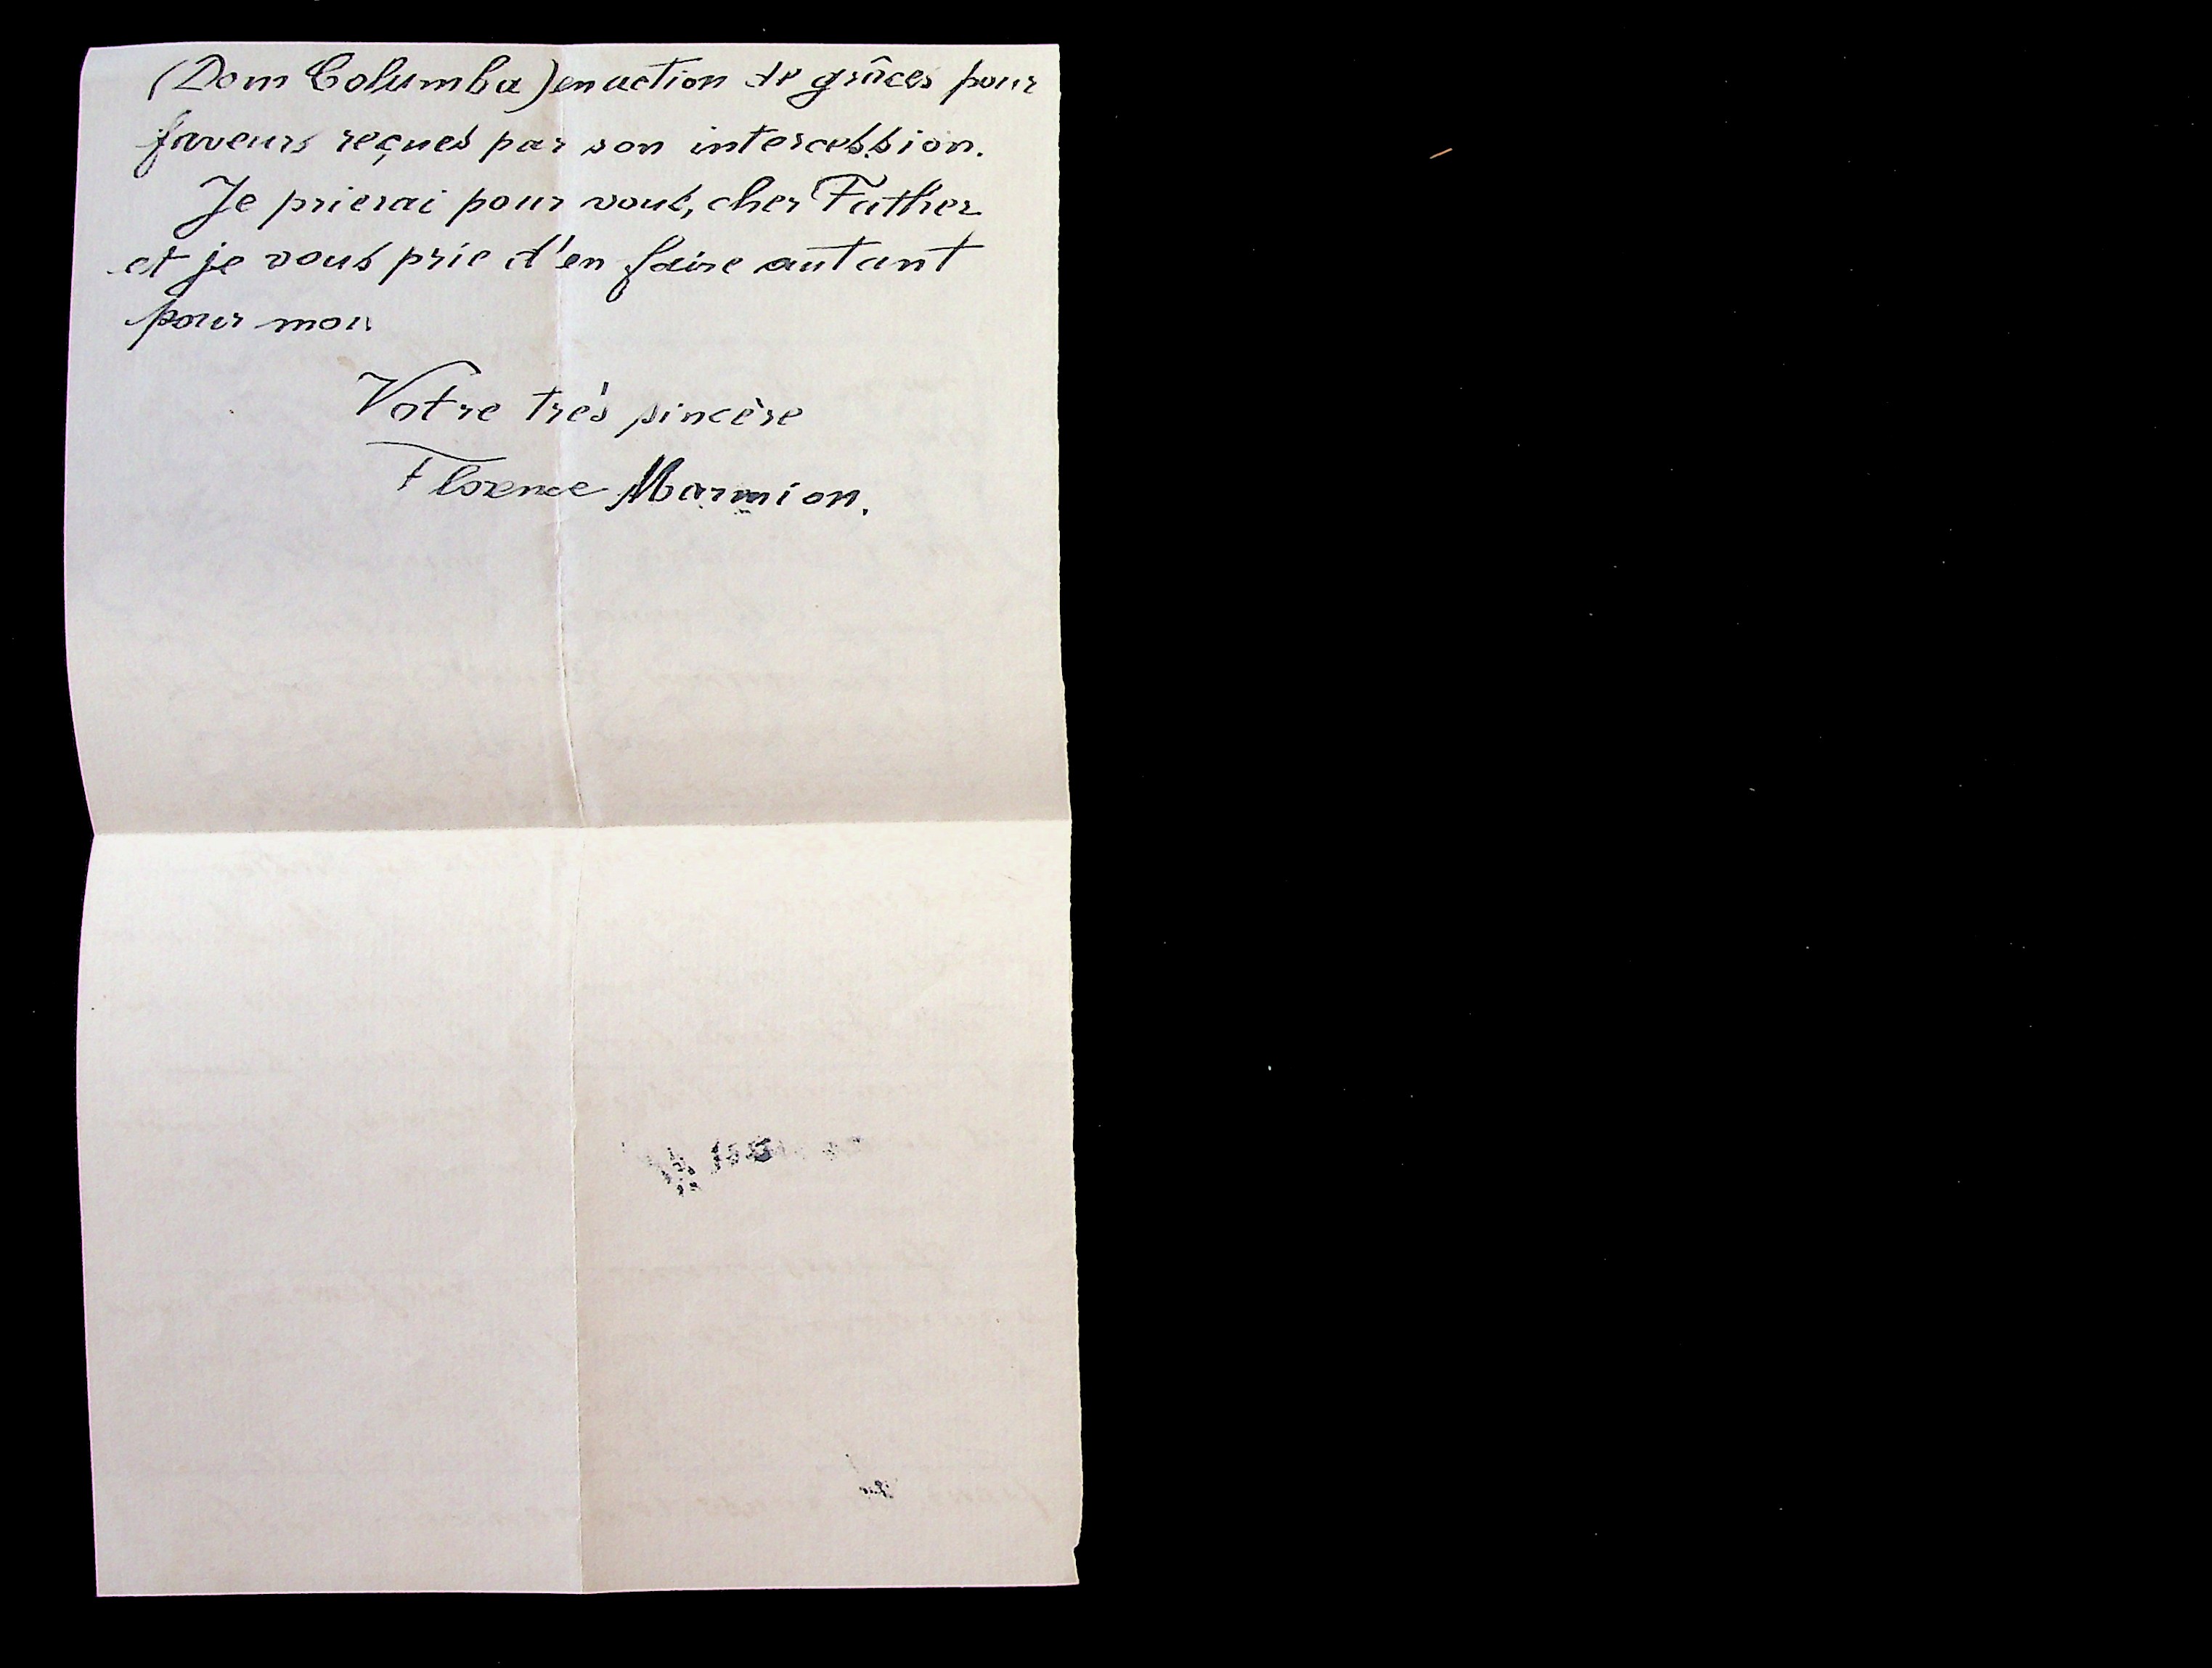 (Dom Columba) en action de grâces pour
faveurs reçues par son intercession.
Je prierai pour vous, cher Father
et je vous prie d'en faire autant
pour moi.
Votre très sincère
Florence Marmion.